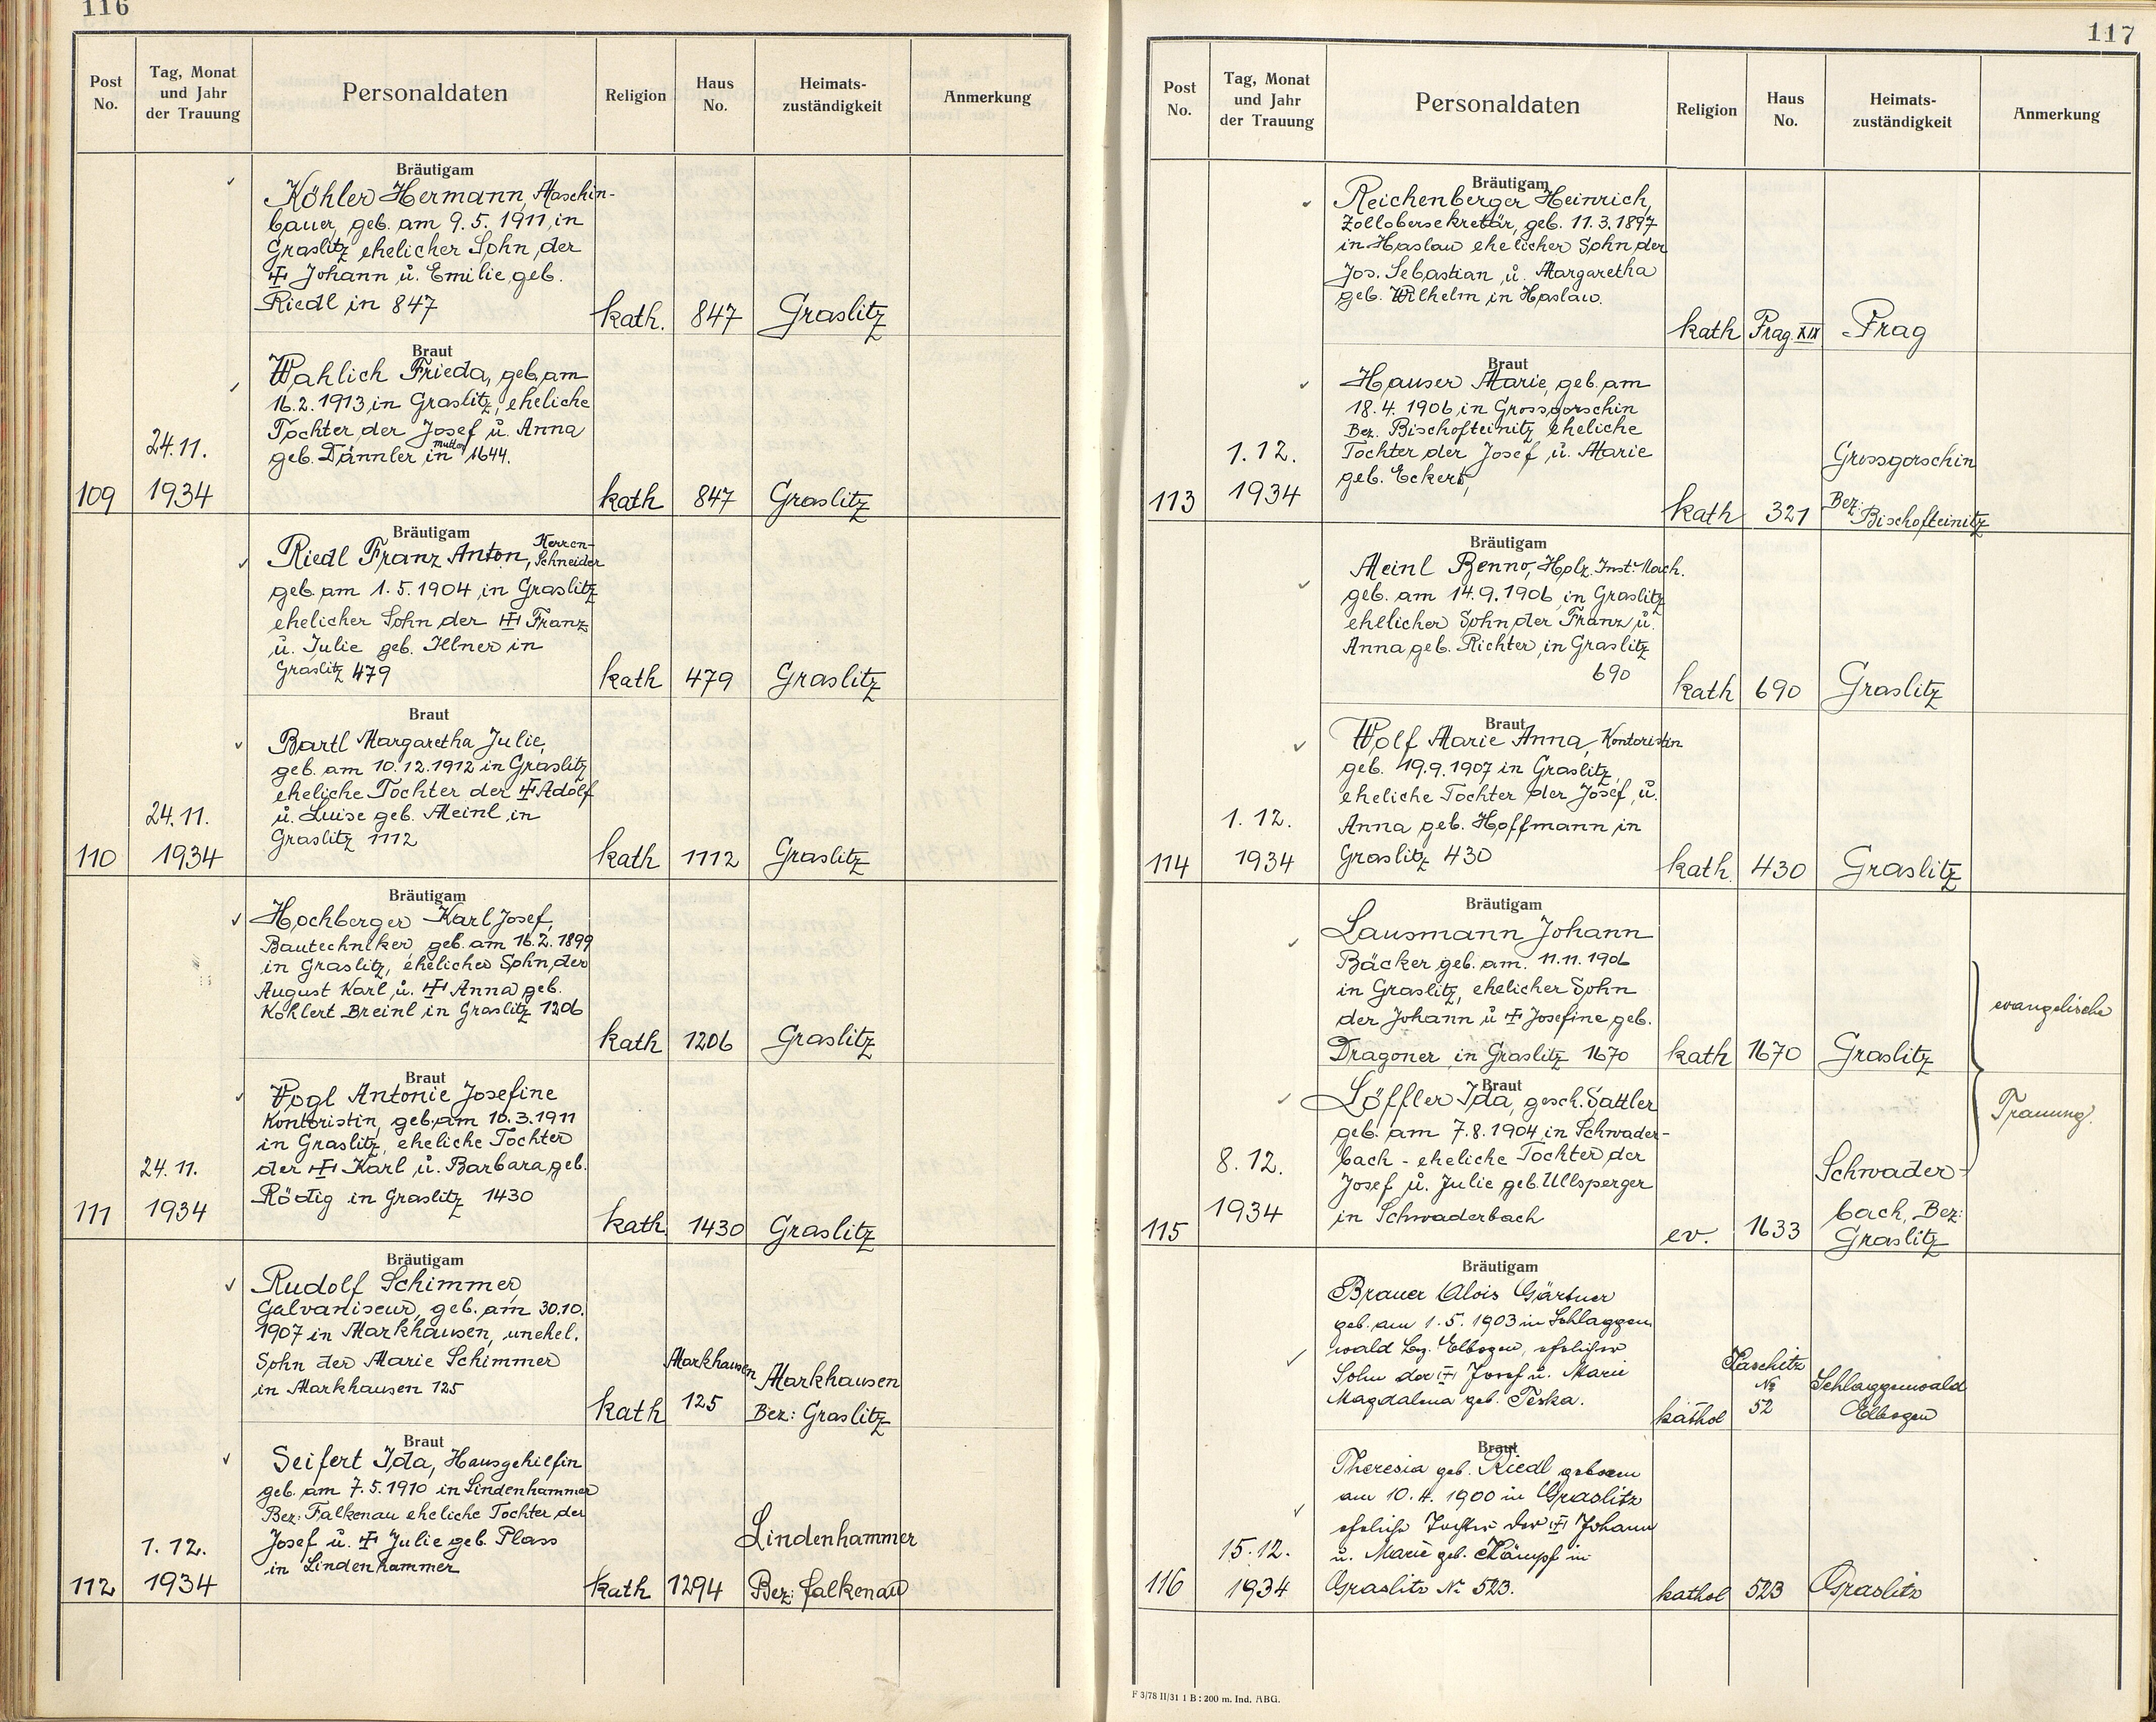 116
Post No.
Tag, Monat und Jahr der Trauung
Personaldaten
Religion
Haus No.
Heimats-zuständigkeit
Anmerkung
Bräutigam
Köhler Hermann, Maschin-
bauer, geb. am 9.5.1911, in
Graslitz ehelicher Sohn der
Johann u. Emilie geb.
Riedl in 847
kath. 847 Graslitz
Braut
Wahlich Frieda, geb. am
16.2.1913, in Graslitz, eheliche
Tochter der Josef u. Anna
geb. Dännler in Mutter 1644.
24.11.
109 1934
kath 847 Graslitz
Bräutigam
Riedl Franz Anton, Herren-
Schneider
geb. am 1.5.1904, in Graslitz
ehelicher Sohn der Franz
u. Julie geb. Illner in
Graslitz 479
kath 479 Graslitz
Braut
Bartl Margaretha Julie,
geb. am 10.12.1912 in Graslitz
eheliche Tochter der Adolf
u. Luise geb. Meinl in
Graslitz 1112
24.11.
110 1934
kath 1112 Graslitz
Bräutigam
Hochberger Karl Josef,
Bautechniker, geb. am 16.2.1899
in Graslitz, ehelicher Sohn der
August Karl, u. Anna geb.
Köhlert Breinl in Graslitz 1206
kath 1206 Graslitz
Braut
Vogl Antonie Josefine
Kontoristin, geb. am 10.3.1911
in Graslitz, eheliche Tochter
der Karl u. Barbara geb.
Rödig in Graslitz 1430
24.11.
111 1934
kath 1430 Graslitz
Bräutigam
Rudolf Schimmer,
Galvaniseur, geb. am 30.10.
1907 in Markhausen, unehel.
Sohn der Marie Schimmer
in Markhausen 125
Markhausen
kath 125
Markhausen
Bez: Graslitz
Braut
Seifert Ida, Hausgehilfin
geb. am 7.5.1910 in Lindenhammer
Bez: Falkenau eheliche Tochter der
Josef u. Julie geb. Plass
in Lindenhammer
1.12.
112 1934
kath 1294
Lindenhammer
Bez: Falkenau
117
Post No.
Tag, Monat und Jahr der Trauung
Personaldaten
Religion
Haus No.
Heimats-zuständigkeit
Anmerkung
Bräutigam
Reichenberger Heinrich,
Zollobersekretär, geb. 11.3.1897
in Haslau ehelicher Sohn der
Jos. Sebastian u. Margaretha
geb. Wilhelm in Haslau.
kath Prag XIX Prag
Braut
Hauser Marie, geb. am
18.4.1906, in Grossgorschin
Bez. Bischofteinitz eheliche
Tochter der Josef u. Marie
geb. Eckert,
1.12.
113 1934
kath 321
Grossgorschin
Bez. Bischofteinitz
Bräutigam
Meinl Benno, Holz. Inst. Mach.
geb. am 14.9.1906, in Graslitz
ehelicher Sohn der Franz u.
Anna geb. Richter, in Graslitz
690
kath 690 Graslitz
Braut
Wolf Marie Anna, Kontoristin
geb. 19.9.1907 in Graslitz,
eheliche Tochter der Josef, u.
Anna geb. Hoffmann in
Graslitz 430
1.12.
114 1934
kath. 430 Graslitz
Bräutigam
Lausmann Johann
Bäcker geb. am. 11.11.1906
in Graslitz, ehelicher Sohn
der Johann u Josefine geb.
Dragoner in Graslitz 1670
kath 1670 Graslitz
evangelische
Trauung.
Braut
Löffler Ida, gesch. Sattler
geb. am 7.8.1904, in Schwader-
bach - eheliche Tochter der
Josef u. Julie geb. Ullsperger
in Schwaderbach
8.12.
115 1934
ev. 1633
Schwader-
bach, Bez:
Graslitz
Bräutigam
Brauer Alois Gärtner
geb. am 1.5.1903 in Schlaggen
wald Bez. Elbogen, ehelicher
Sohn der Josef u. Marie
Magdalena geb. Peska.
kathol
Haschitz
No
52
Schlaggenwald
Elbogen
Braut
Theresia geb. Riedl geboren
am 10.4.1900 in Graslitz
eheliche Tochter der Johann
u. Marie geb. Kämpf in
Graslitz No 523.
15.12.
116 1934
kathol 523 Graslitz
F 3/78 II/31 1 B : 200 m. Ind. ABG.